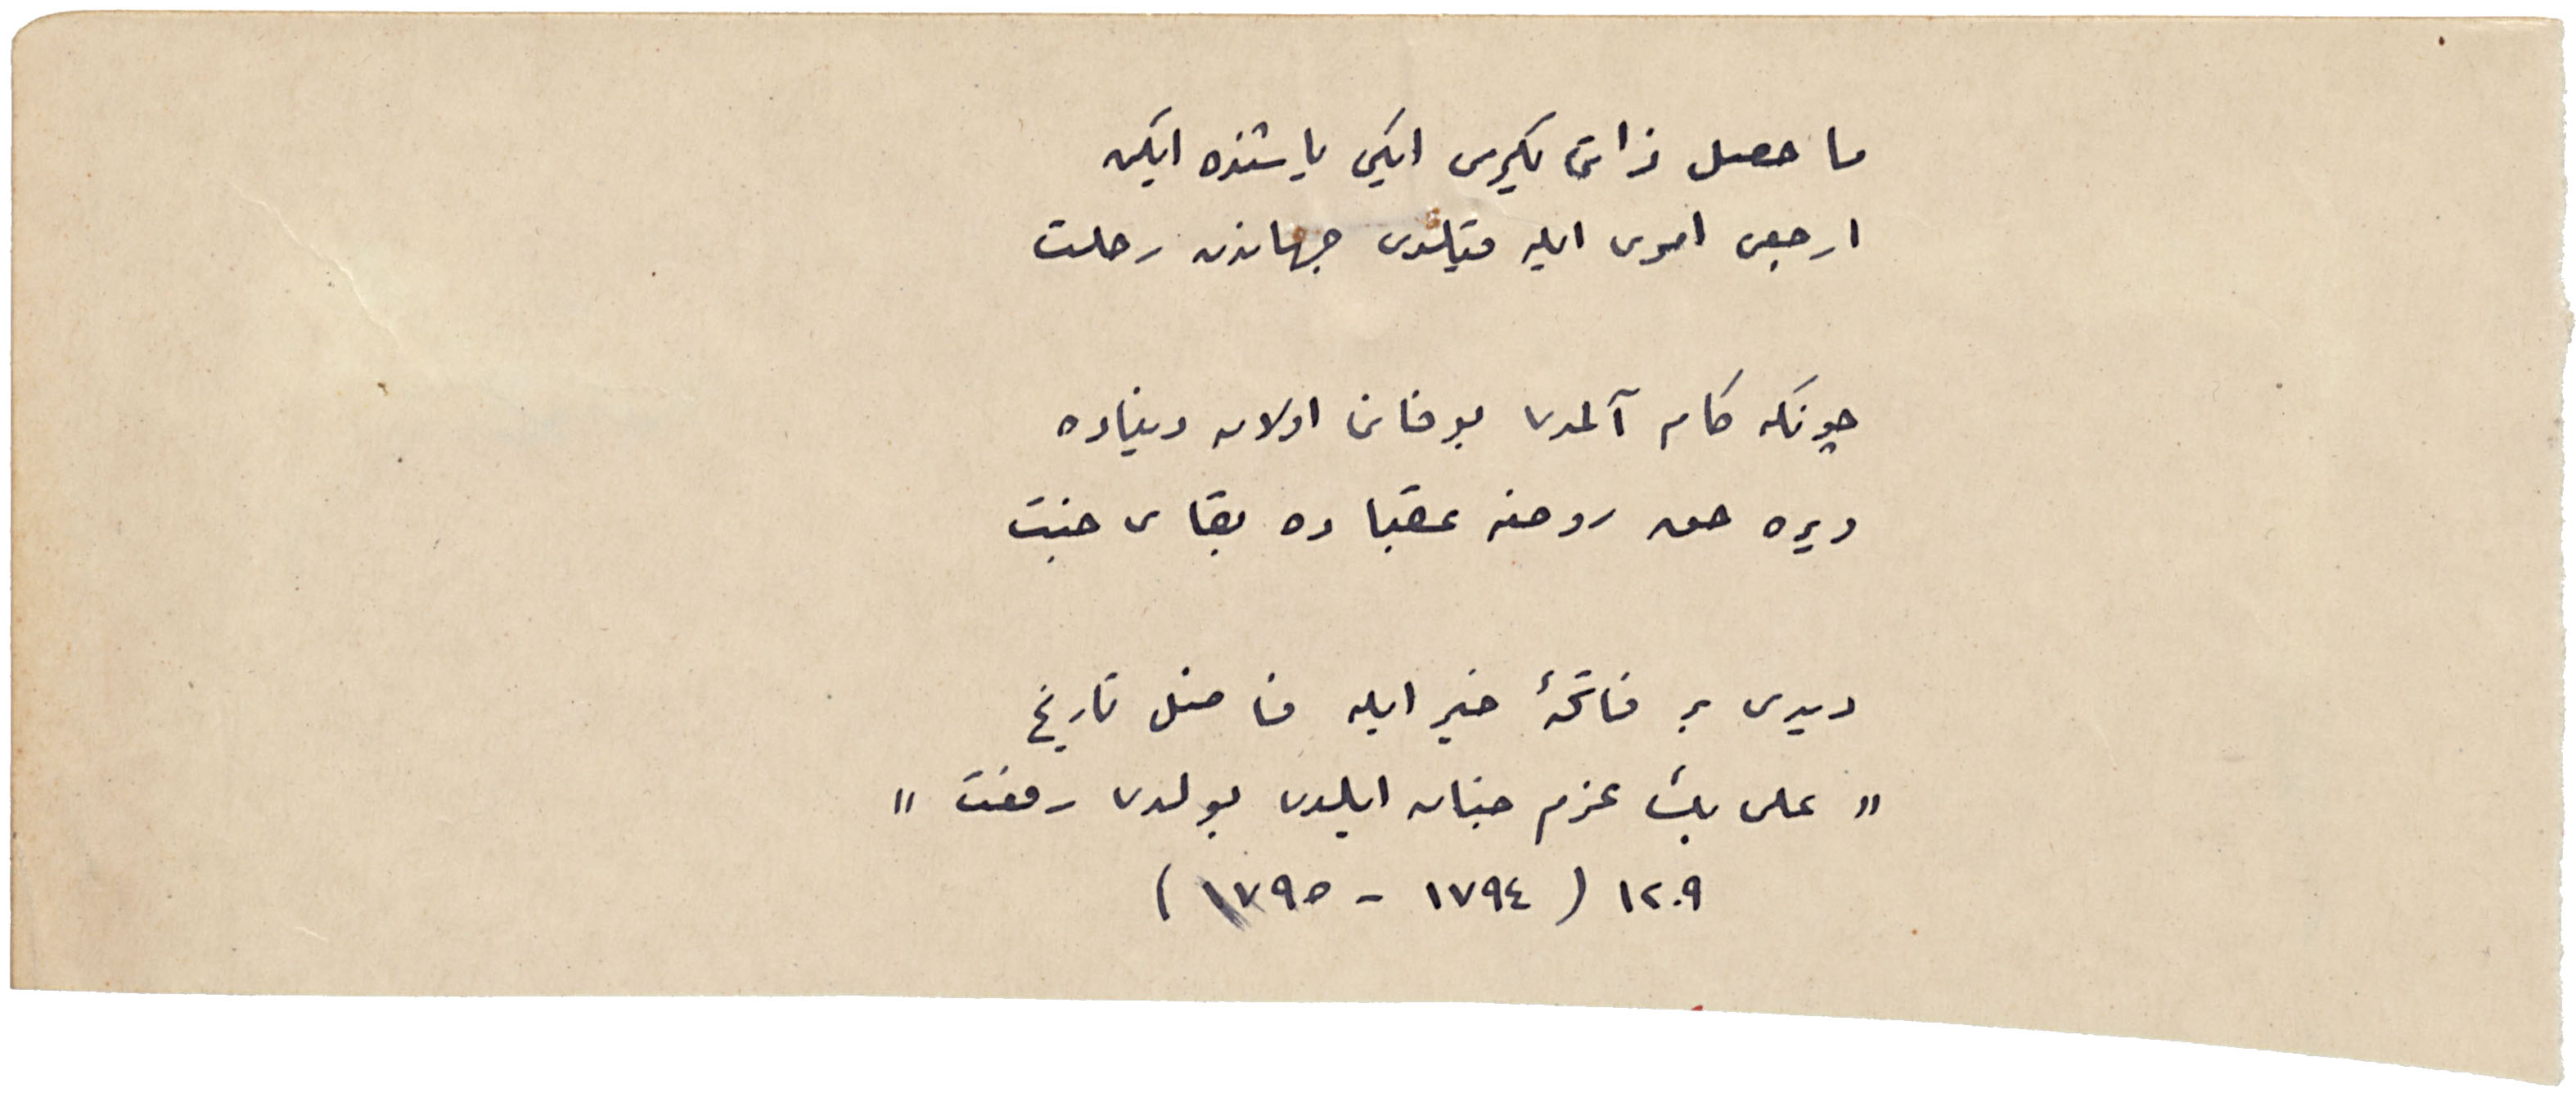 ما حصل ذاتی یکیرمی ایکی یاشنده ایکن
ارجعی امری ایله قیلدی جهاندن رحلت
چونکه کام آلمدی بو فانی اولان دنیاده
ویره حق روحنه عقباده بقای جنت
دیدی بر فاتحهٔ خیر ایله فاضل تاریخ
" علی بك عزم جنان ایلدی بولدی رفعت "
١٢٠٩ ( ١٧٩٤ - ١٧٩٥ )